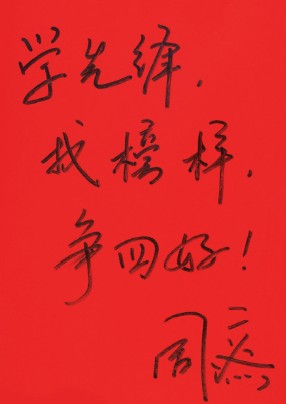 学先锋,
找榜样,
争四好!
周